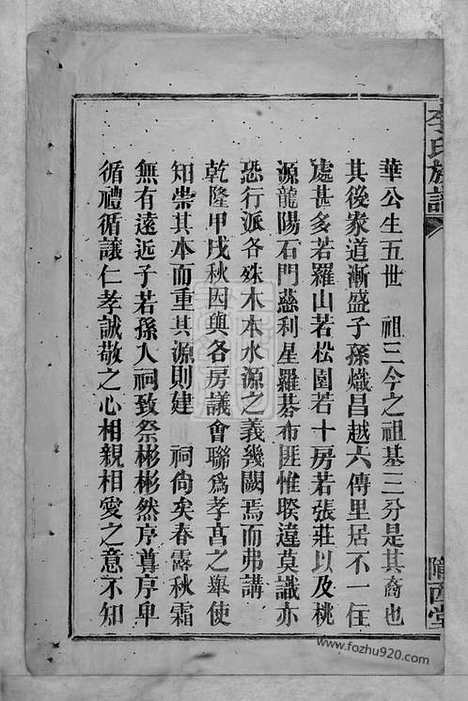 李氏族譜
隴西堂
華公生五世　祖三今之祖基三分是其裔也
其後家道漸盛子孫熾昌越六傳里居不一住
處甚多若羅山若松園若十房若張莊以及桃
源龍陽石門慈利星羅碁布匪惟暌違莫識亦
恐行派各殊木本水源之義幾闕焉而弗講
乾隆甲戌秋因與各房議會聯爲孝享之舉使
知崇其本而重其源則建　祠尙矣春露秋霜
無有遠近子若孫入祠致祭彬彬然序尊序卑
循禮循讓仁孝誠敬之心相親相愛之意不知
www.fozhu920.com